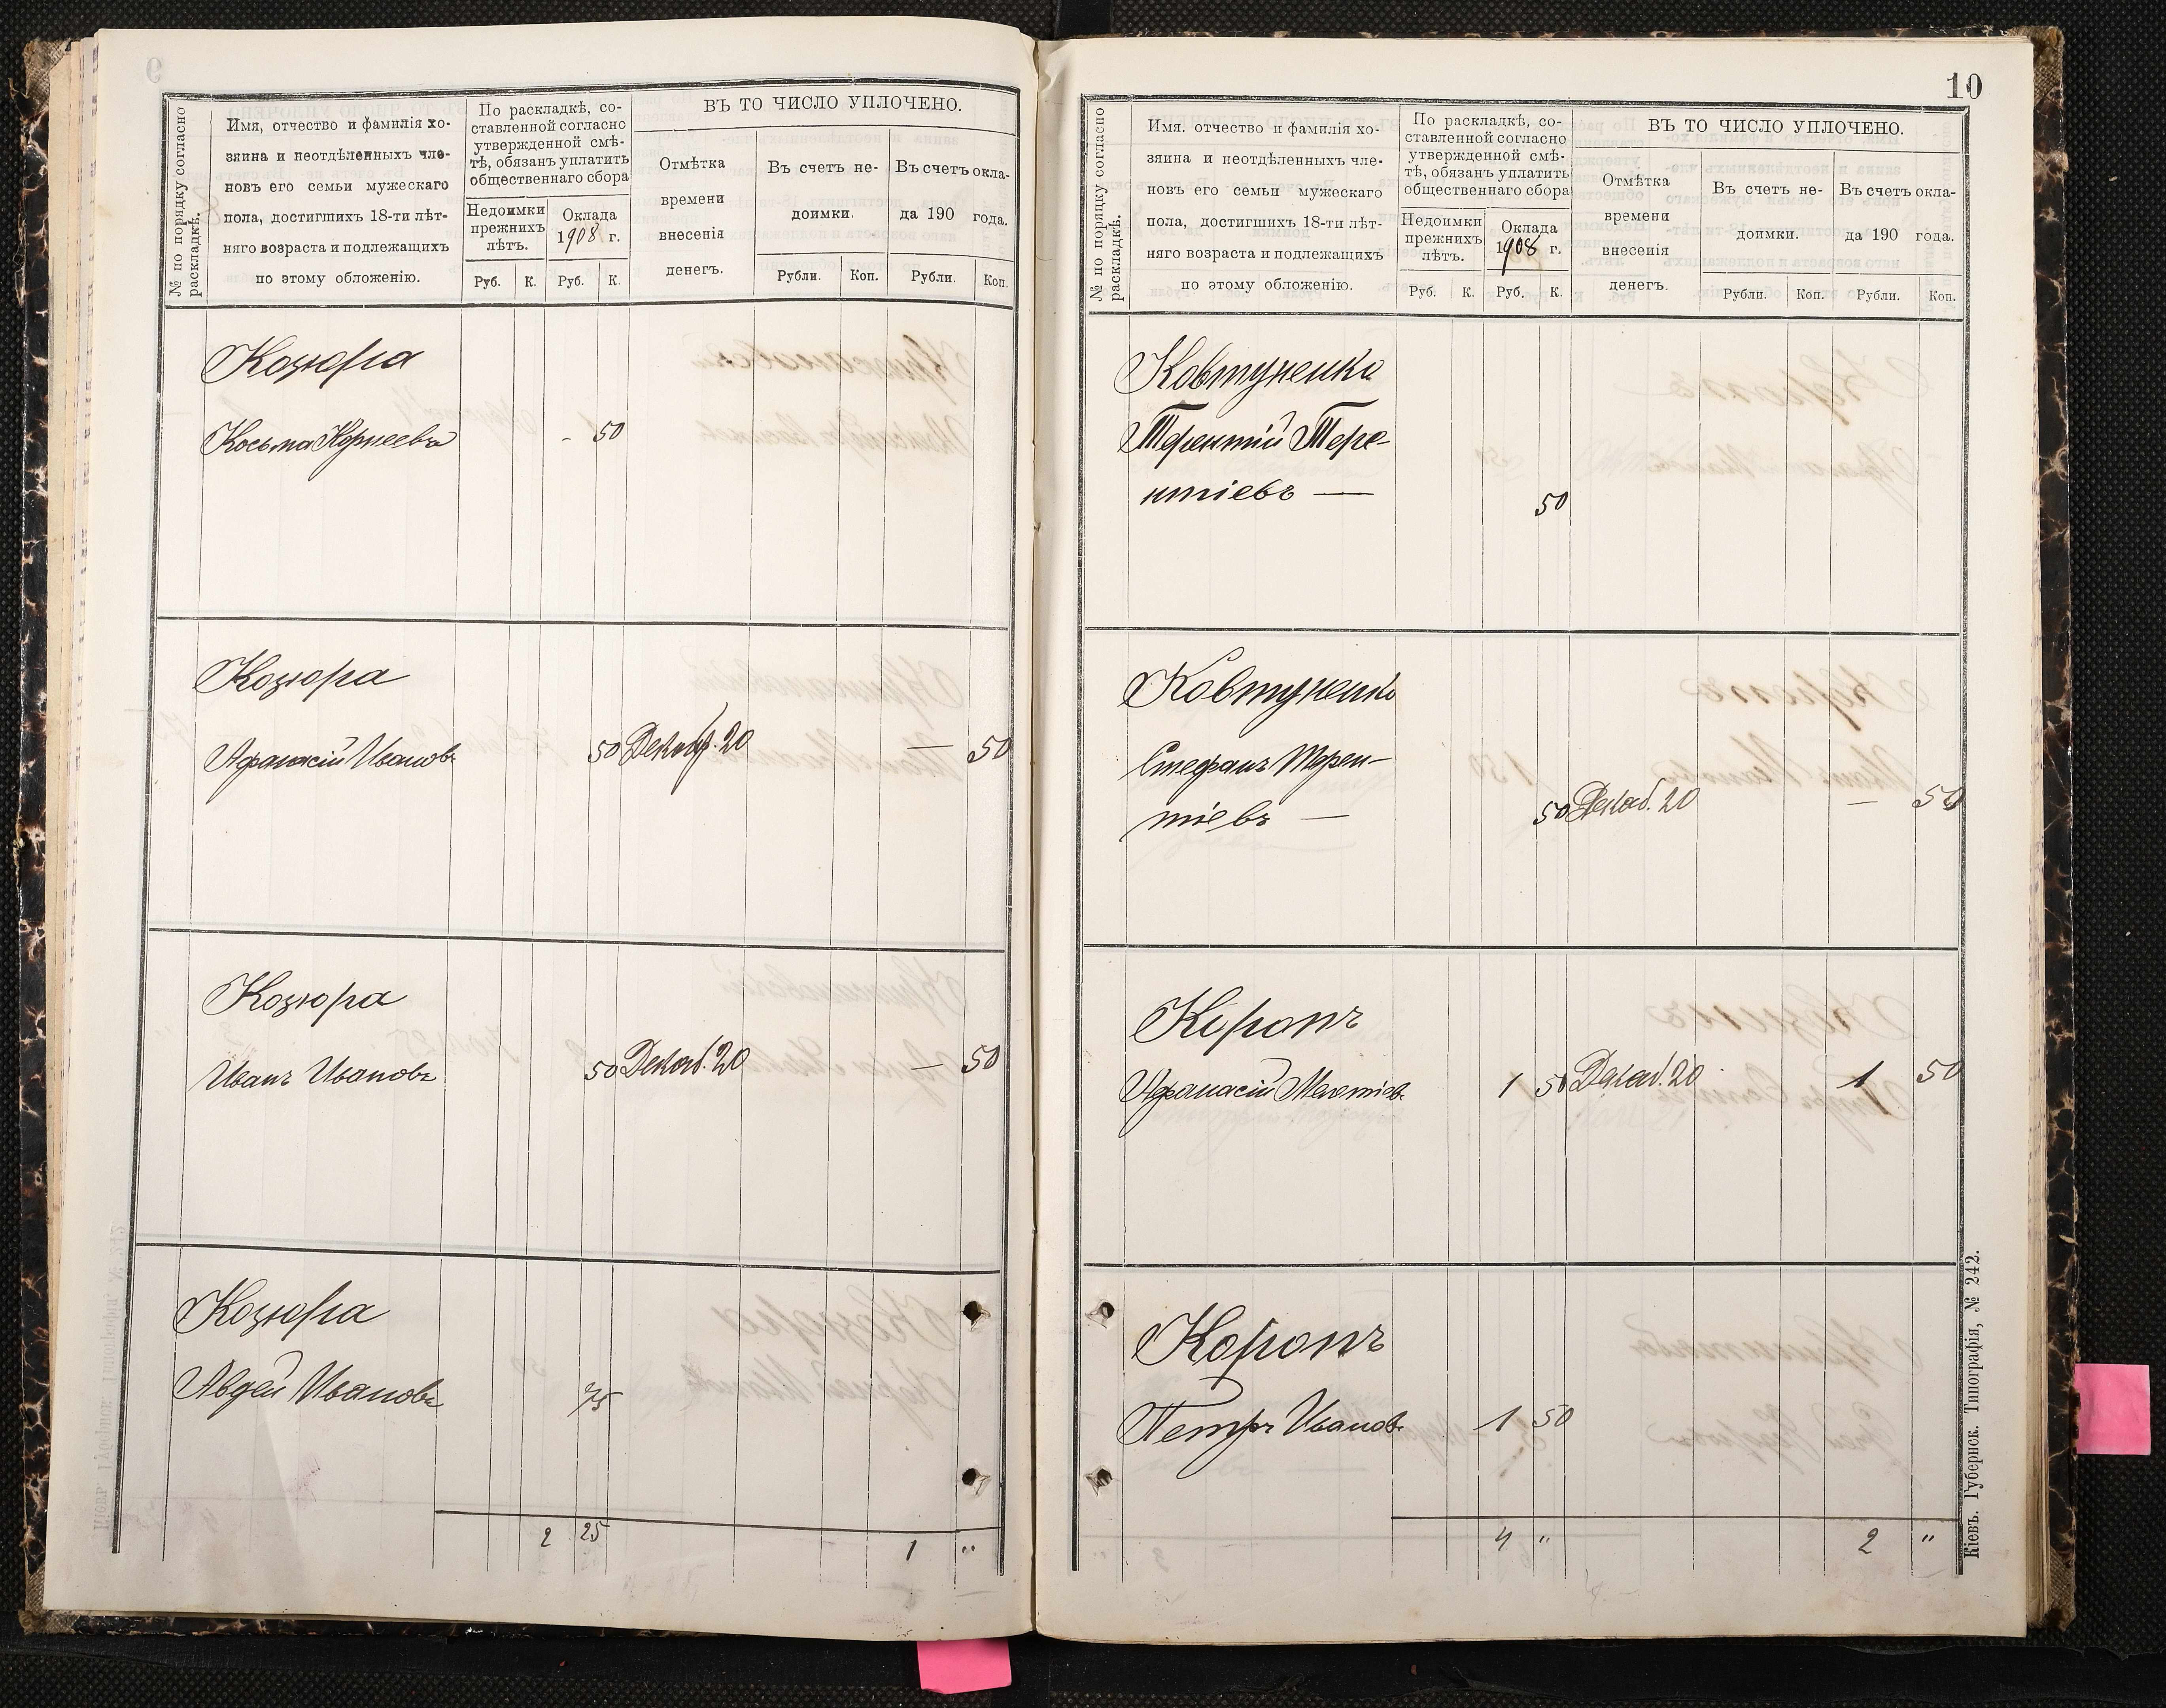 № по порядку согласно
раскладкѣ.
Имя, отчество и фамилія хо-
зяина и неотдѣленныхъ чле-
новъ его семьи мужескаго
пола, достигшихъ 18-ти лѣт-
няго возраста и подлежащихъ
по этому обложенію.
По раскладкѣ, со-
ставленной согласно
утвержденной смѣ-
тѣ, обязанъ уплатить
общественнаго сбора
Недоимки
прежнихъ
лѣтъ.
Оклада
1908 г.
Руб. К. Руб. К.
ВЪ ТО ЧИСЛО УПЛОЧЕНО.
Отмѣтка
времени
внесенія
денегъ.
Въ счетъ не-
доимки.
Рубли. Коп.
Въ счетъ окла-
да 190 года.
Рубли. Коп.
Козюра
Косьма Корнеевъ - 50
Козюра
Афанасій Ивановъ 50 Декабр. 20 — 50
Козюра
Иванъ Ивановъ 50 Декаб. 20 — 50
Козюра
Авдей Ивановъ 75
2 25 1 "
10
№ по порядку согласно
раскладкѣ.
Имя. отчество и фамилія хо-
зяина и неотдѣленныхъ чле-
новъ его семьи мужескаго
пола, достигшихъ 18-ти лѣт-
няго возраста и подлежащихъ
по этому обложенію.
По раскладкѣ, со-
ставленной согласно
утвержденной смѣ-
тѣ, обязанъ уплатить
общественнаго сбора
Недоимки
прежнихъ
лѣтъ.
Оклада
1908 г.
Руб. К. Руб. К.
ВЪ ТО ЧИСЛО УПЛОЧЕНО.
Отмѣтка
времени
внесенія
денегъ.
Въ счетъ не-
доимки.
Рубли. Коп.
Въ счетъ окла-
да 190 года.
Рубли. Коп.
Ковтуненко
Терентій Тере-
нтіевъ — 50
Ковтуненко
Стефанъ Терен-
тіевъ — 50 Декаб. 20 — 50
Коропъ
Афанасій 1 50 Декаб. 20 1 50
Коропъ
Петръ Ивановъ 1 50
4 " 2 "
Кіевъ. Губернск. Типографія, № 242.